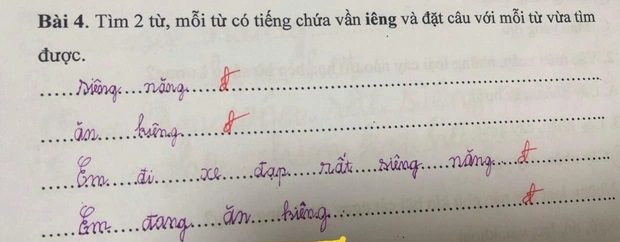 Bài 4. Tìm 2 từ, mỗi từ có tiếng chứa vần iêng và đặt câu với mỗi từ vừa tìm
được.
siêng năng đ
ăn kiêng đ
Em đi xe đạp rất siêng năng đ
Em đang ăn kiêng đ